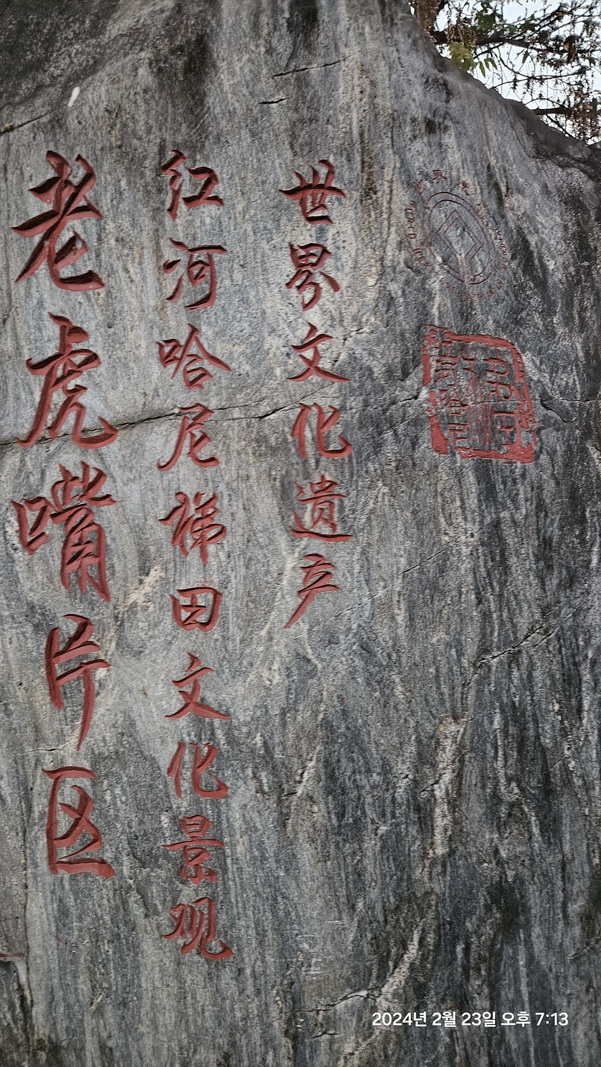 世界文化遗产
红河哈尼梯田文化景观
老虎嘴片区
2024년 2월 23일 오후 7:13